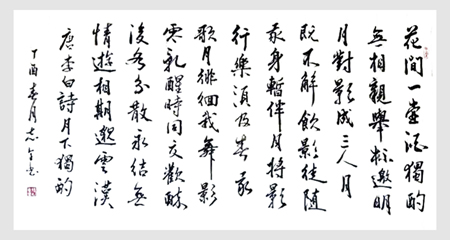 花間一壺酒獨酌
無相親舉杯邀明
月對影成三人月
既不解飲影徒隨
我身暫伴月將影
行樂須及春我
歌月徘徊我舞影
零亂醒時同交歡醉
後各分散永結無
情遊相期邈雲漢
唐李白詩月下獨酌
丁酉春月志書